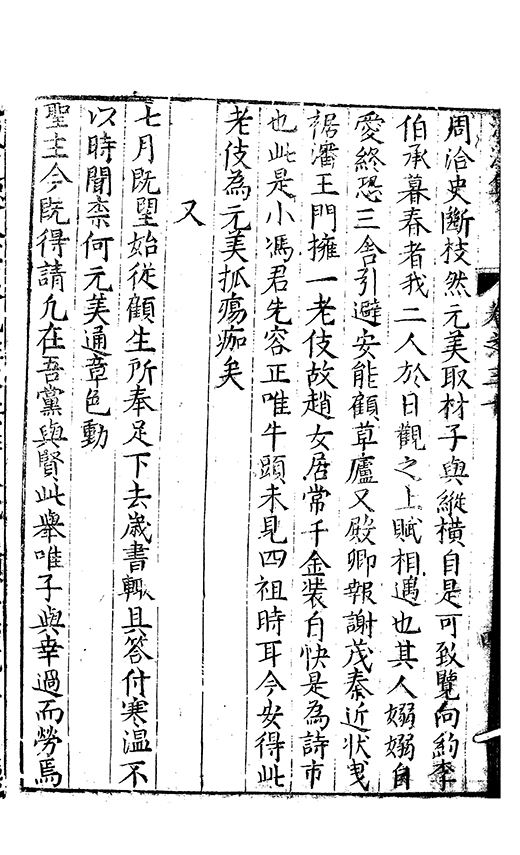 周洽史斷枝然元美取材子與縱橫自是可致覽向約李
伯承暮春者我二人於日觀之上賦相遇也其人嫋嫋自
愛終恐三舍引避安能顧草廬又殿卿報謝茂秦近狀曳
裾瀋王門擁一老伎故趙女居常千金裝自快是為詩市
也此是小馮君先容正唯牛頭未見四祖時耳今安得此
老伎為元美抓瘍痂矣
又
七月既望始從顧生所奉足下去歲書輒具答付寒温不
以時聞柰何元美通章色動
聖主今既得請允在吾黨與賢此舉唯子與幸過而勞焉